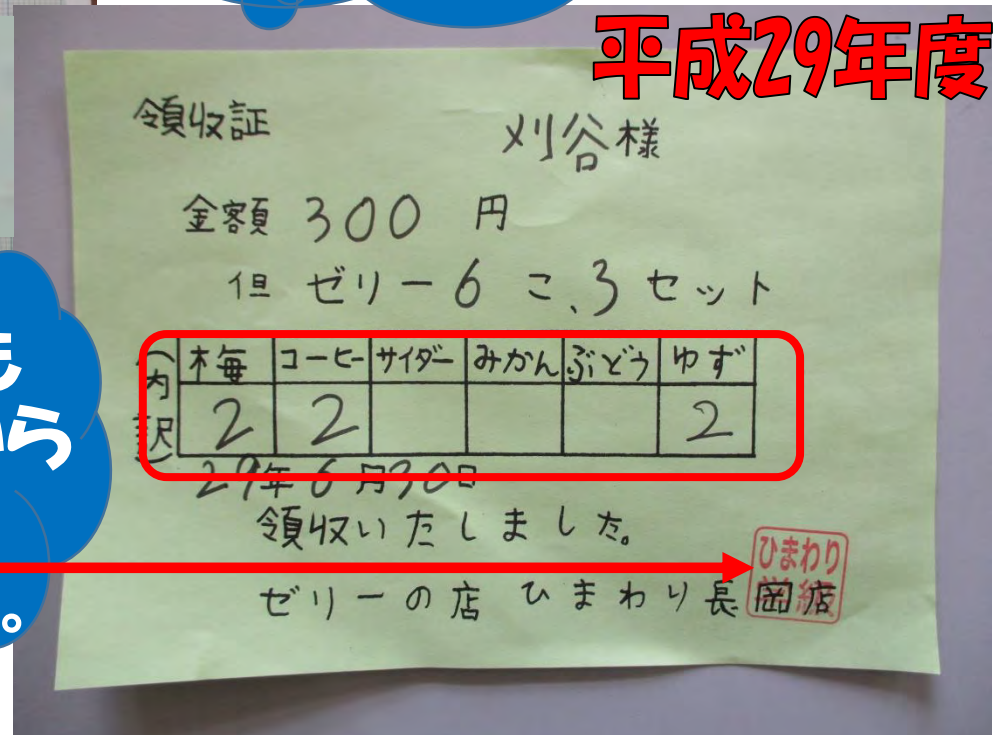 平成29年度
領収証
刈谷様
金額 300 円
但 ゼリー6 こ、3 セット
(内訳)
梅 コーヒー サイダー みかん ぶどう ゆず
2 2 2
29年6月30日
領収いたしました。
ゼリーの店 ひまわり長岡店
ひまわり
も
から
。